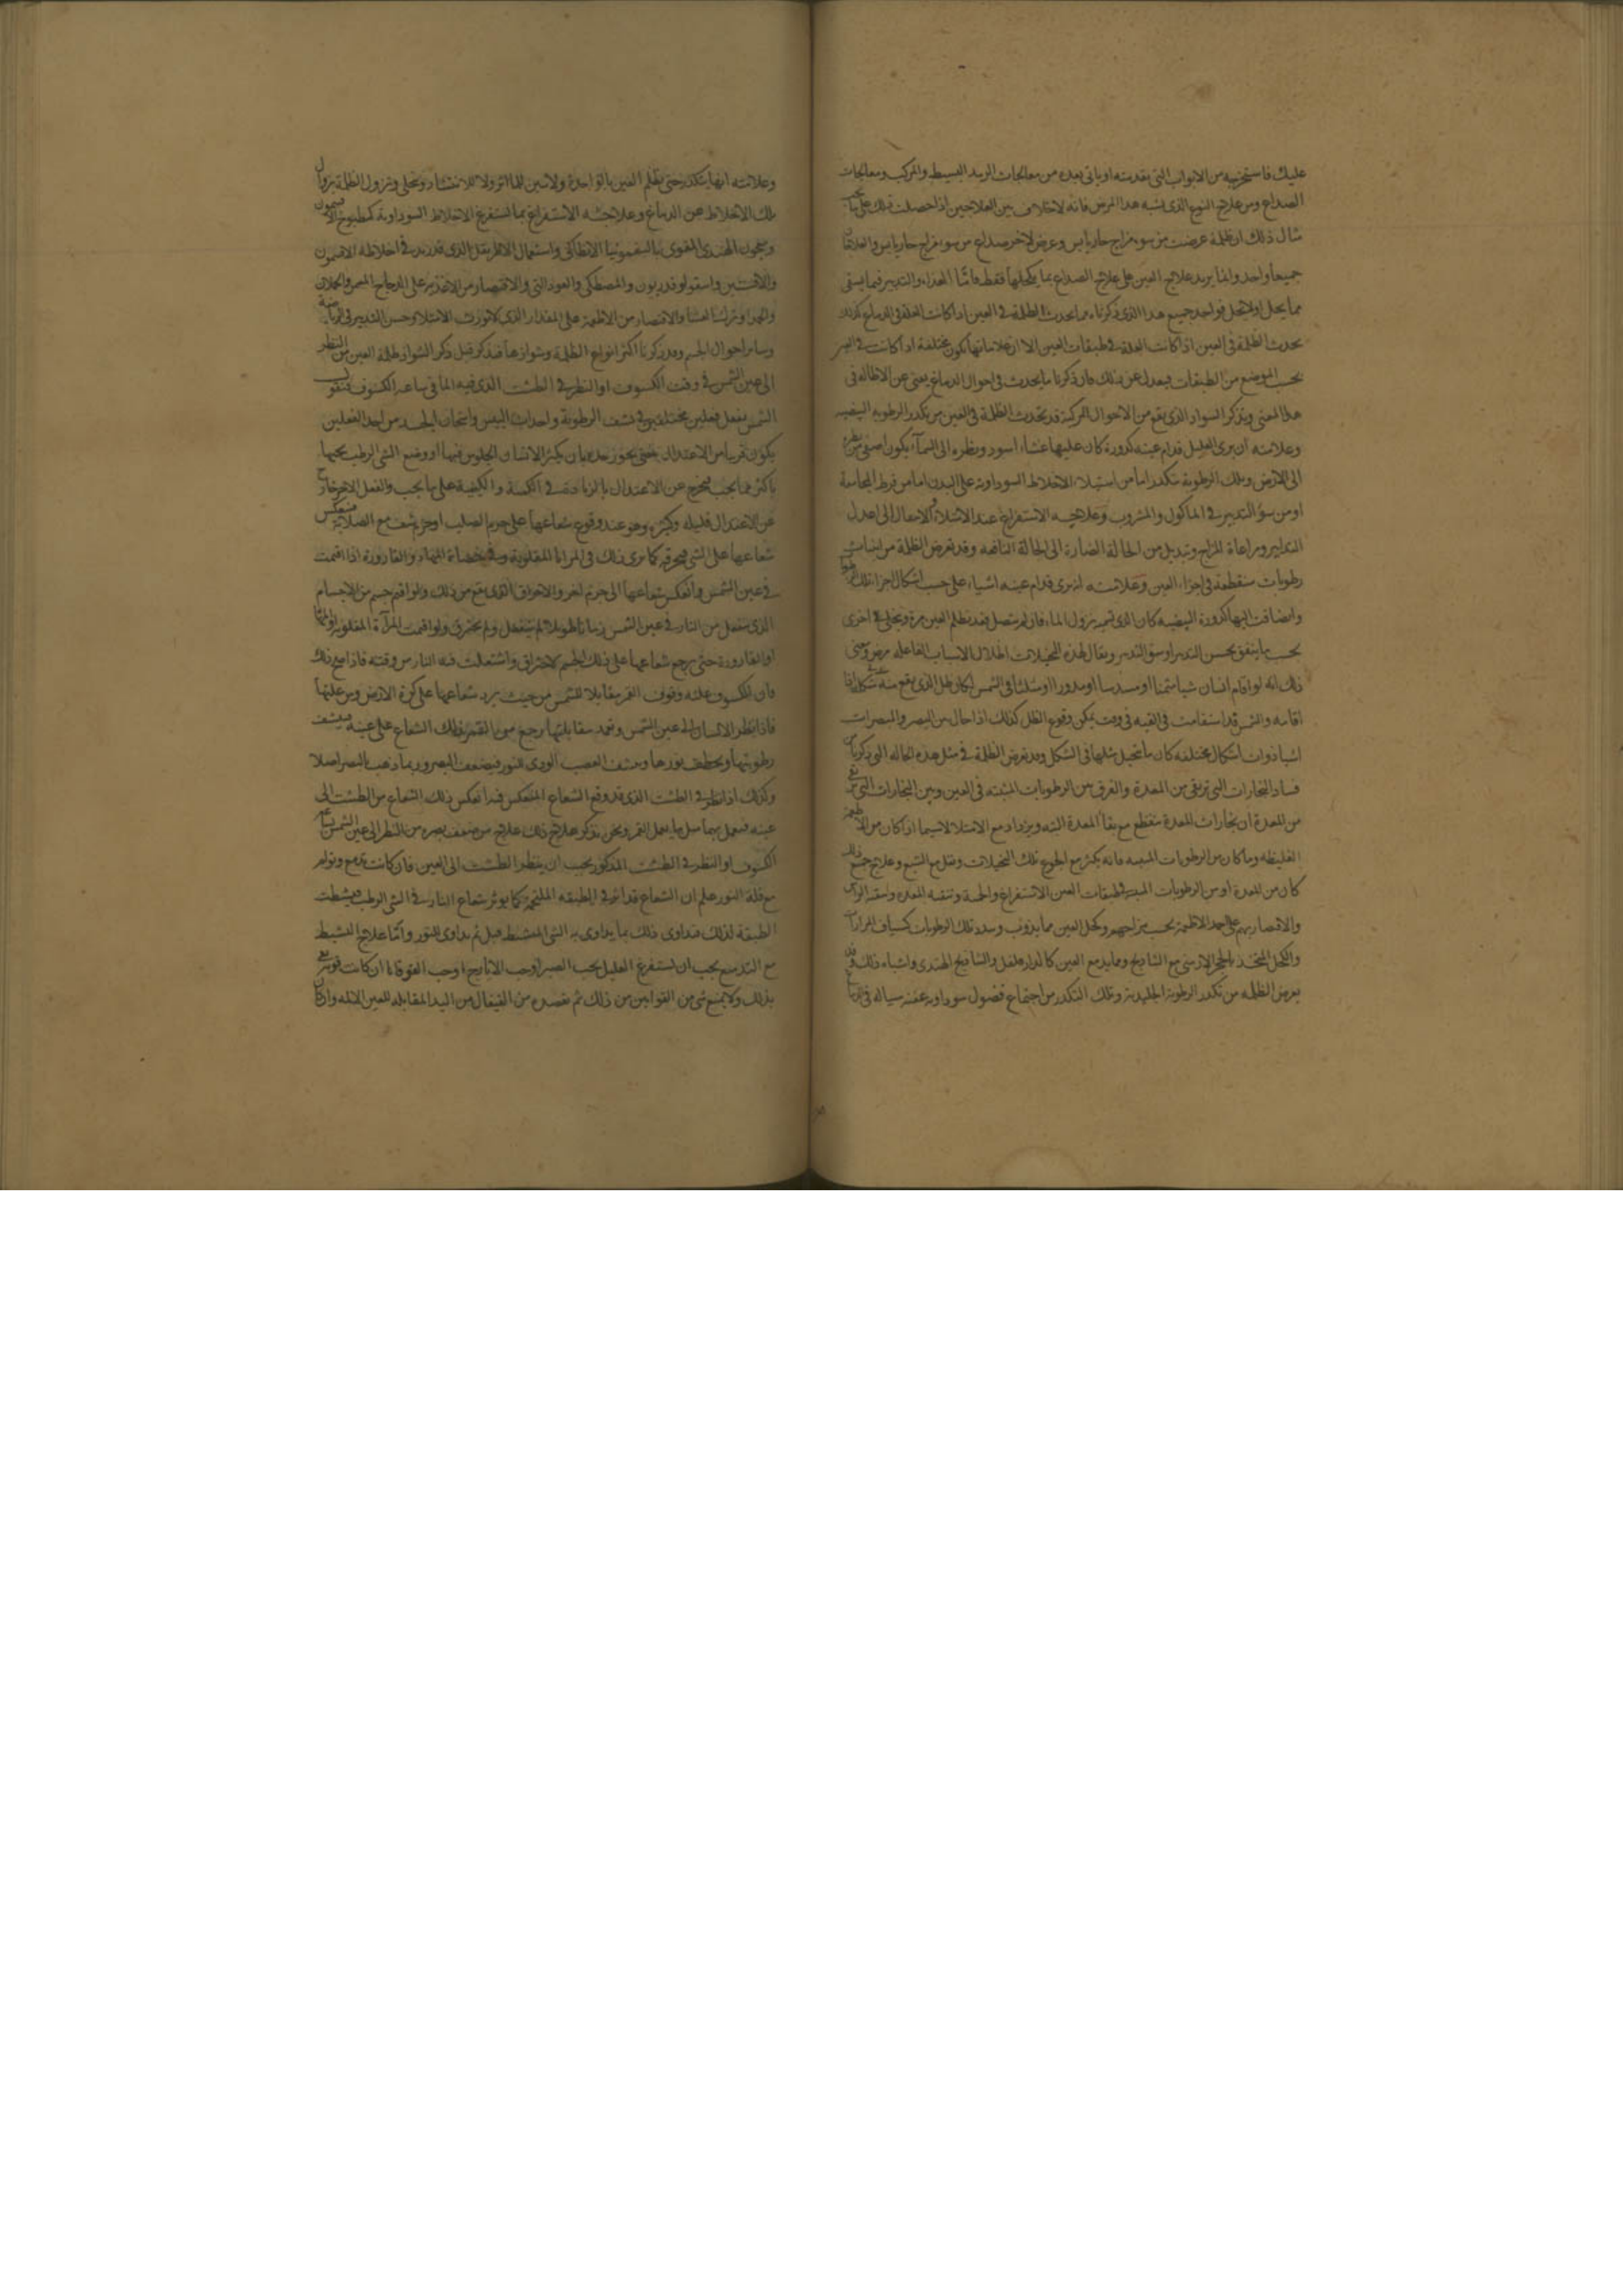 عليك فاستخرجه من الابواب التى تقدمته او ياتى بعده من معالجات الرمد البسيط والمركب ومعالجات
الصداع ومن علاج النوع الذى يشبه هذا المرض فانه لا خلاف بين العلاجين اذا حصلت ذلك على
مثال ذلك ان ظلمة عرضت من سوء مزاج حار يابس وعرض لاخر صداع من سوء مزاج حار يابس والعلاجان
جميعا واحد وانما يزيد علاج العين على علاج الصداع بما يكحلها فقط فاما الغذاء والتدبير فيما يسقى
مما يحل او لا يحل فواحد جميع هذا الذى ذكرناه مما يحدث الظلمة فى العين اذا كانت العلة فى الدماغ وكذلك
تحدث الظلمة فى العين اذا كانت العلة فى طبقات العين الا ان علاماتها تكون مختلفة اذا كانت فى العين
بحسب الموضع من الطبقات فيعدل عن ذلك فان ذكرنا ما يحدث فى احوال الدماغ يغنى عن الاطالة فى
هذا المعنى ونذكر السواد الذى يقع من الاحوال المركبة قد تحدث الظلمة فى العين من تكدر الرطوبة البيضيه
وعلامته ان يرى العليل قدام عينه كدورة كان عليها غشاء اسود ونظره الى السماء يكون اصفى من نظره
الى الارض وتلك الرطوبة تتكدر اما من استيلاء الاخلاط السوداوية على البدن اما من فرط المجامعة
او من سوء التدبير فى الماكول والمشروب وعلاجه الاستفراغ عند الامتلاء والانتقال الى اعدل
التدابير ومراعاة المزاج وتبديل من الحالة الضارة الى الحالة النافعة وقد تعرض الظلمة من انبثاث
رطوبات منقطعة فى اجزاء العين وعلامته ان يرى قدام عينه اشياء على حسب اشكال اجزاء تلك الرطوبة
وان ضافت اليها كدورة البيضيه كان الذى نسميه نزول الماء فان لم يتصل فقد تظلم العين مرة وتجلى فى اخرى
بحسب ما يتفق بحسن التدبير او سوء التدبير ويقال لهذه التخيلات اظلال الاسباب الفاعله مرض ومعنى
ذلك انه لو اقام انسان شيا مثمنا او مسدسا او مدورا او مثلثا فى الشمس لكان ظل الذى يقع منه على شكله اذا
اقامه والشمس قد استقامت فى القبه فى وقت يمكن وقوع الظل كذلك اذا حال بين البصر والمبصرات
اشيا ذوات اشكال مختلفه كان ما يتخيل مثلها فى الشكل وقد تعرض الظلمة فى مثل هذه الحاله التى ذكرناها
فساد البخارات التى ترتقى من المعدة والفرق بين الرطوبات المنبثه فى العين وبين البخارات التى ترتفع
من المعدة ان بخارات المعدة تنقطع مع نقاء المعدة البته ويزداد مع الامتلاء لاسيما اذا كان من الاطعمة
الغليظه وما كان من الرطوبات المنبثه فانه يكثر مع الجوع تلك التخيلات وتقل مع الشبع وعلاج جميع ذلك
كان من المعدة او من الرطوبات المنبثه فى طبقات العين الاستفراغ والحمية وتنقية المعدة
والاقتصار بهم على احمد الاطعمة بحسب مزاجهم وتكحل العين مما يذوب ويبدد تلك الرطوبات كشياف المرارات
والكحل المتخذ بالحجر الارمنى مع الشاذنج ومما يدمع العين كالدار فلفل والشاذنج الهندى واشباه ذلك وقد
تعرض الظلمه من تكدر الرطوبة الجليدية وتلك التكدر من اجتماع فضول سوداوية عفنه سياله فى الدماغ
وعلامته انها تتكدر حتى تظلم العين بالواحدة ولا يتبين للماء اثر ولا للانتشار وتجلى وتزول الظلمة بزوال
تلك الاخلاط عن الدماغ وعلاجه الاستفراغ بما يستفرغ الاخلاط السوداوية كمطبوخ الافتيمون
ومعجون الهندى المقوى بالسقمونيا الانطاكى واستعمال الاطريفل الذى قد زيد فى اخلاطه الافتيمون
والافسنتين واسقولوقندريون والمصطكى والعود النى والاقتصار من الاغذية على الدجاج المسمن والحملان
والجدا وترك العشا والاقتصار من الاطعمة على المقدار الذى لا تورث الامتلا وحسن التدبير فى الرياضة
وساير احوال الجسم وقد ذكرنا اكثر انواع الظلمة وشواذها فنذكر قبل ذكر الشواذ ظلمة العين من النظر
الى عين الشمس فى وقت الكسوف او النظر فى الطشت الذى فيه الماء فى ساعة الكسوف فنقول
الشمس تفعل فعلين مختلفين فى نشف الرطوبة واحداث اليبس واسخان الجسد من احد الفعلين
يكون قريبا من الاعتدال بمعنى يجوز حده بان يكثر الانسان الجلوس فيها او وضع الشى الرطب تحتها
باكثر مما يجب فيخرج عن الاعتدال بالزيادة فى الكمية والكيفية على ما يجب والفعل الاخر خارج
عن الاعتدال قليله وكثيره وهو عند وقوع شعاعها على جرم الصلب او جرم شف مع الصلابة فينعكس
شعاعها على الشى فيحرقه كما نرى ذلك فى المرايا المقلوبة وفى فضاة المها والقارورة اذا اقيمت
فى عين الشمس وانعكس شعاعها الى جرم اخر والاحراق الذى يقع من ذلك ولو اقيم جسم من الاجسام
الذى ينفعل من النار فى عين الشمس زمانا طويلا لم ينفعل ولم يحترق ولو اقيمت المرآة المقلوبة او المها
او القارورة حتى يرجع شعاعها على ذلك الجسم لاحترق واشتعلت فيه النار من وقته فاذا صح ذلك
فان الكسوف علته وقوف القمر مقابلا للشمس من حيث يرد شعاعها على كرة الارض ومن علتها
فاذا نظر الانسان الى عين الشمس وتعمد مقابلتها رجع من القمر ذلك الشعاع على عينه فينشف
رطوبتها ويخطف نورها وينشف العصب المودى للنور فيضعف البصر وربما ذهب بالبصر اصلا
وكذلك اذا نظر فى الطشت الذى قد وقع الشعاع المنعكس فيه انعكس ذلك الشعاع من الطشت الى
عينه فيعمل بهما مثل ما يعمل القمر ونحن نذكر علاج ذلك علاج من ضعف بصره من النظر الى عين الشمس
الكسوف او النظر فى الطشت المذكور يجب ان ينظر الطشت الى العين فان كانت تدمع وتولم
مع قلة النور علم ان الشعاع قد اثر فى الطبقه الملتحمة كما يوثر شعاع النار فى الشى الرطب فيشطت
الطبقة لذلك فتداوى ذلك بما يداوى به الشى المتشيط قبل ثم يداوى النور واما علاج التشيط
مع التدمع يجب ان يستفرغ العليل بحب الصبر او حب الايارج او حب القوقايا ان كانت قوته تفى
بذلك ولا يمنع شى من القوانين من ذلك ثم تفصده من القيفال من اليد المقابلة للعين العليله وان كان